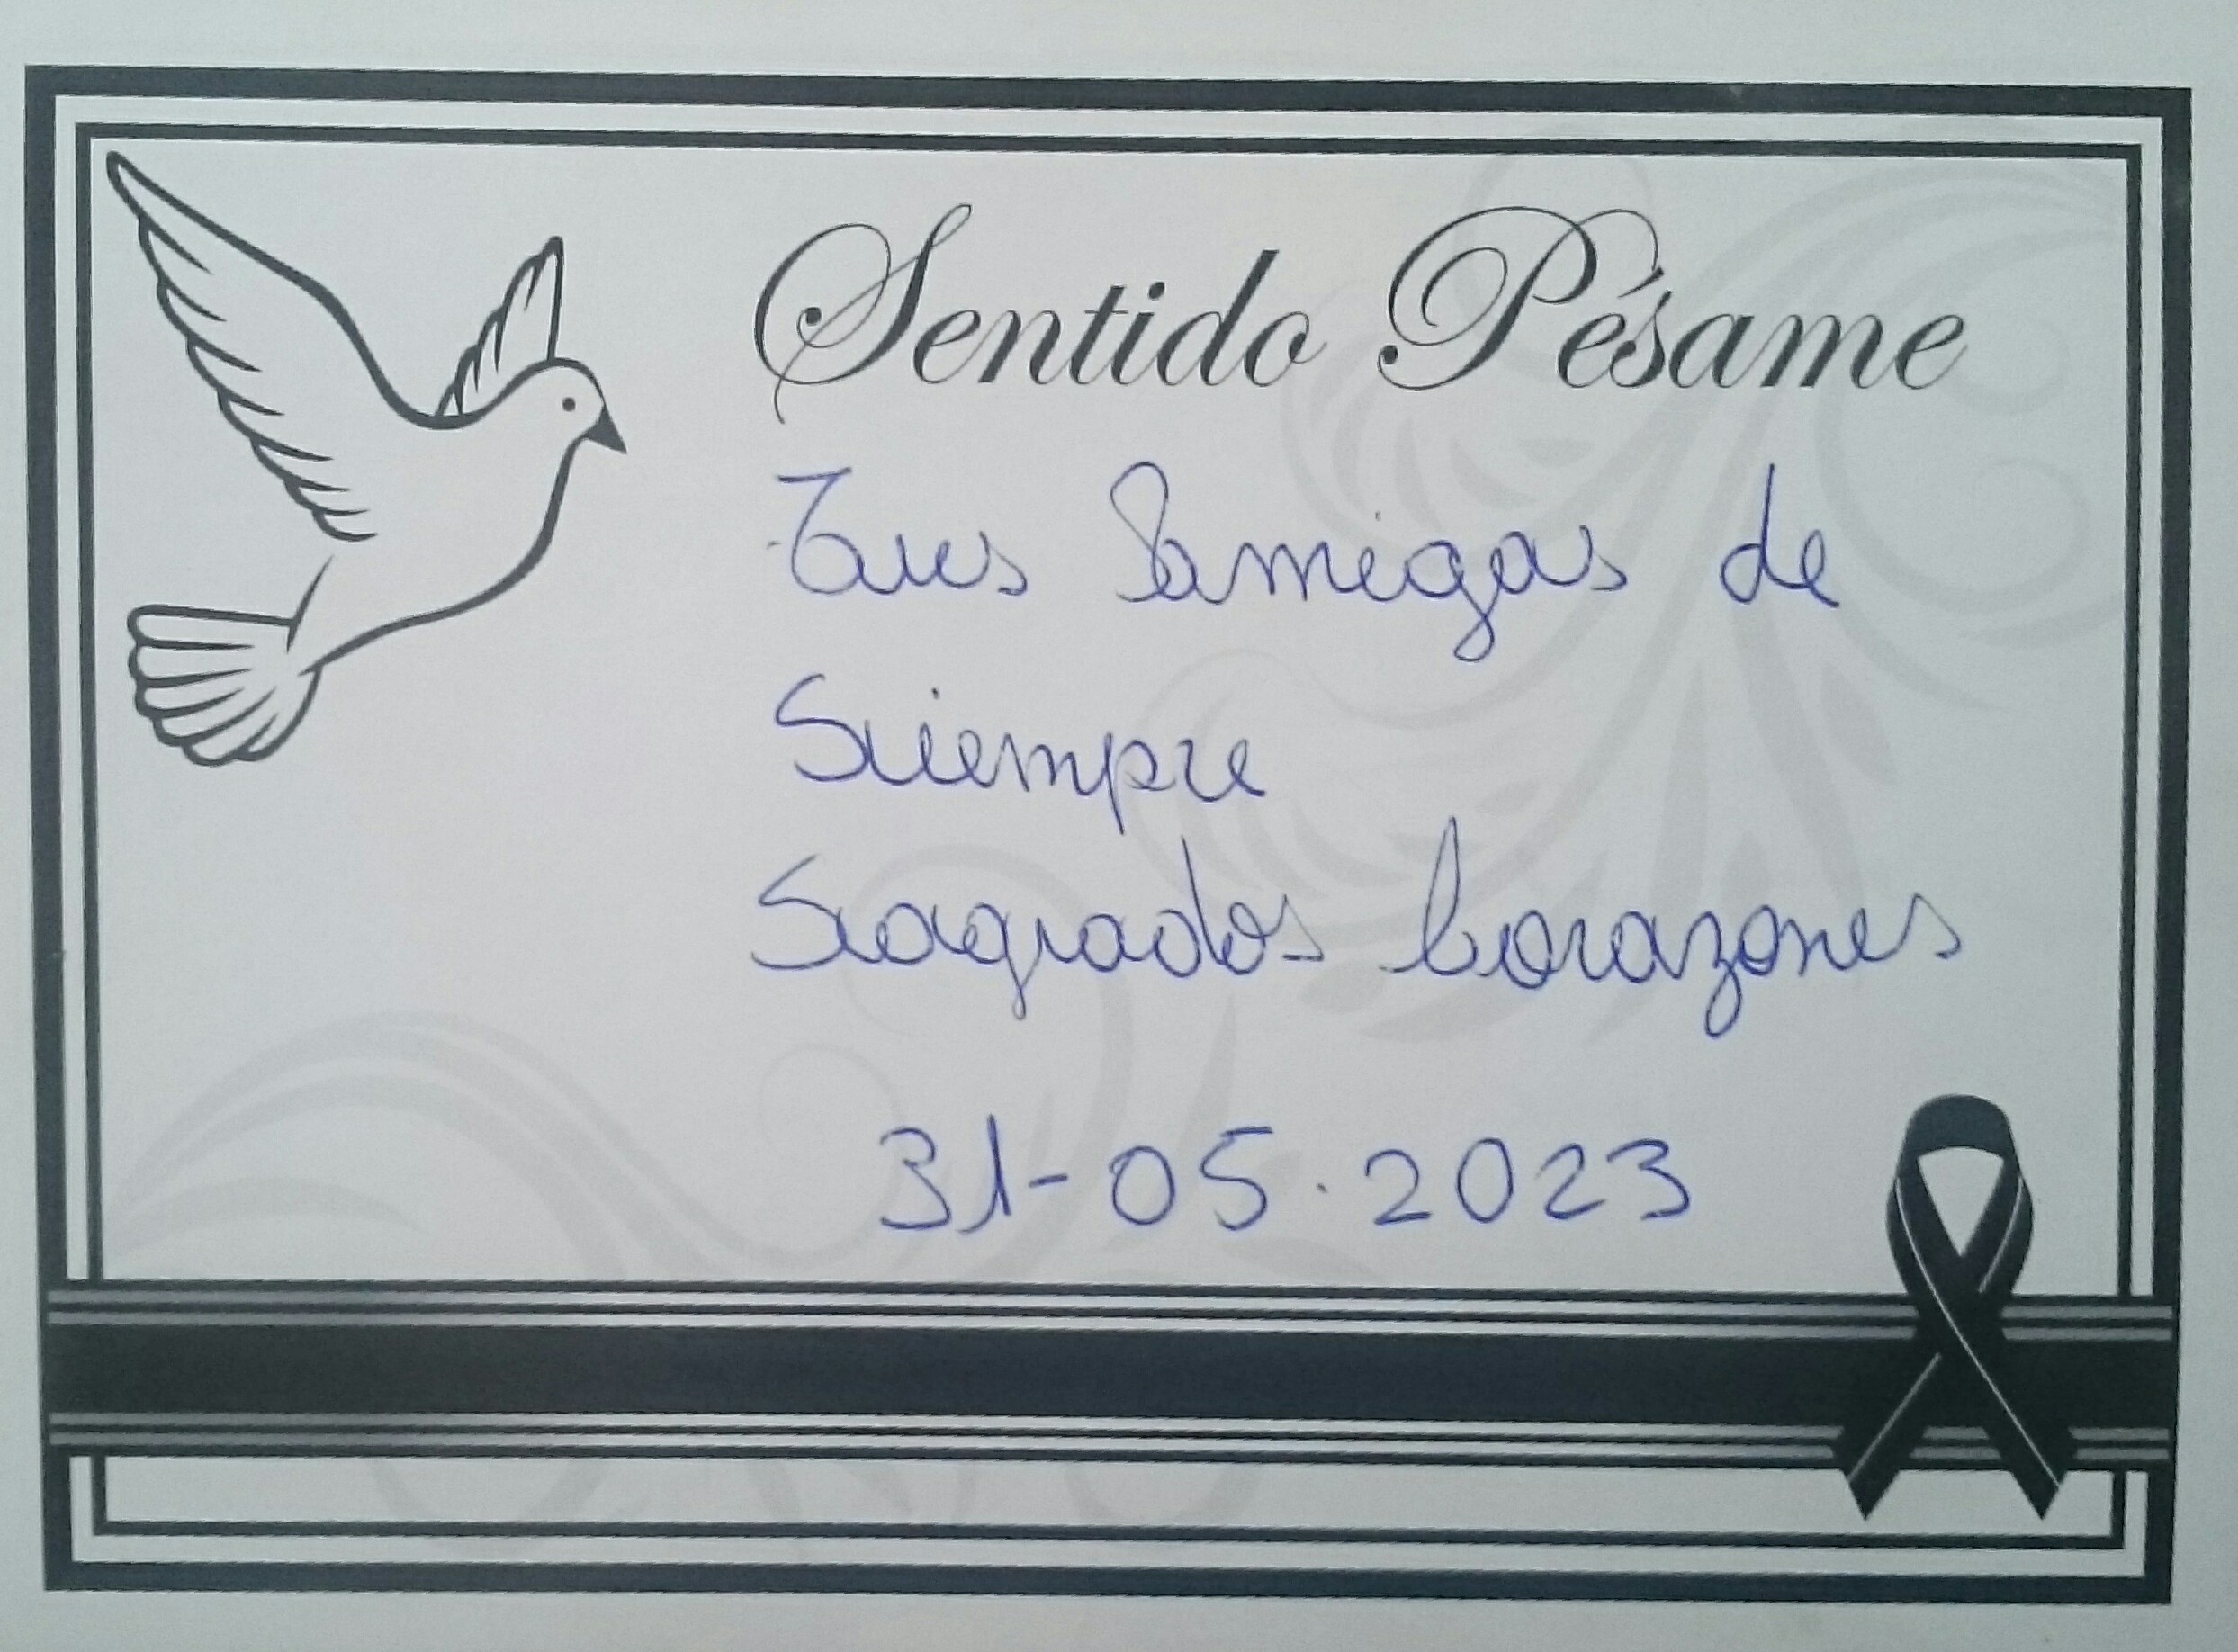 Sentido Pésame
Tus amigas de
Siempre
Sagrados Corazones
31-05.2023